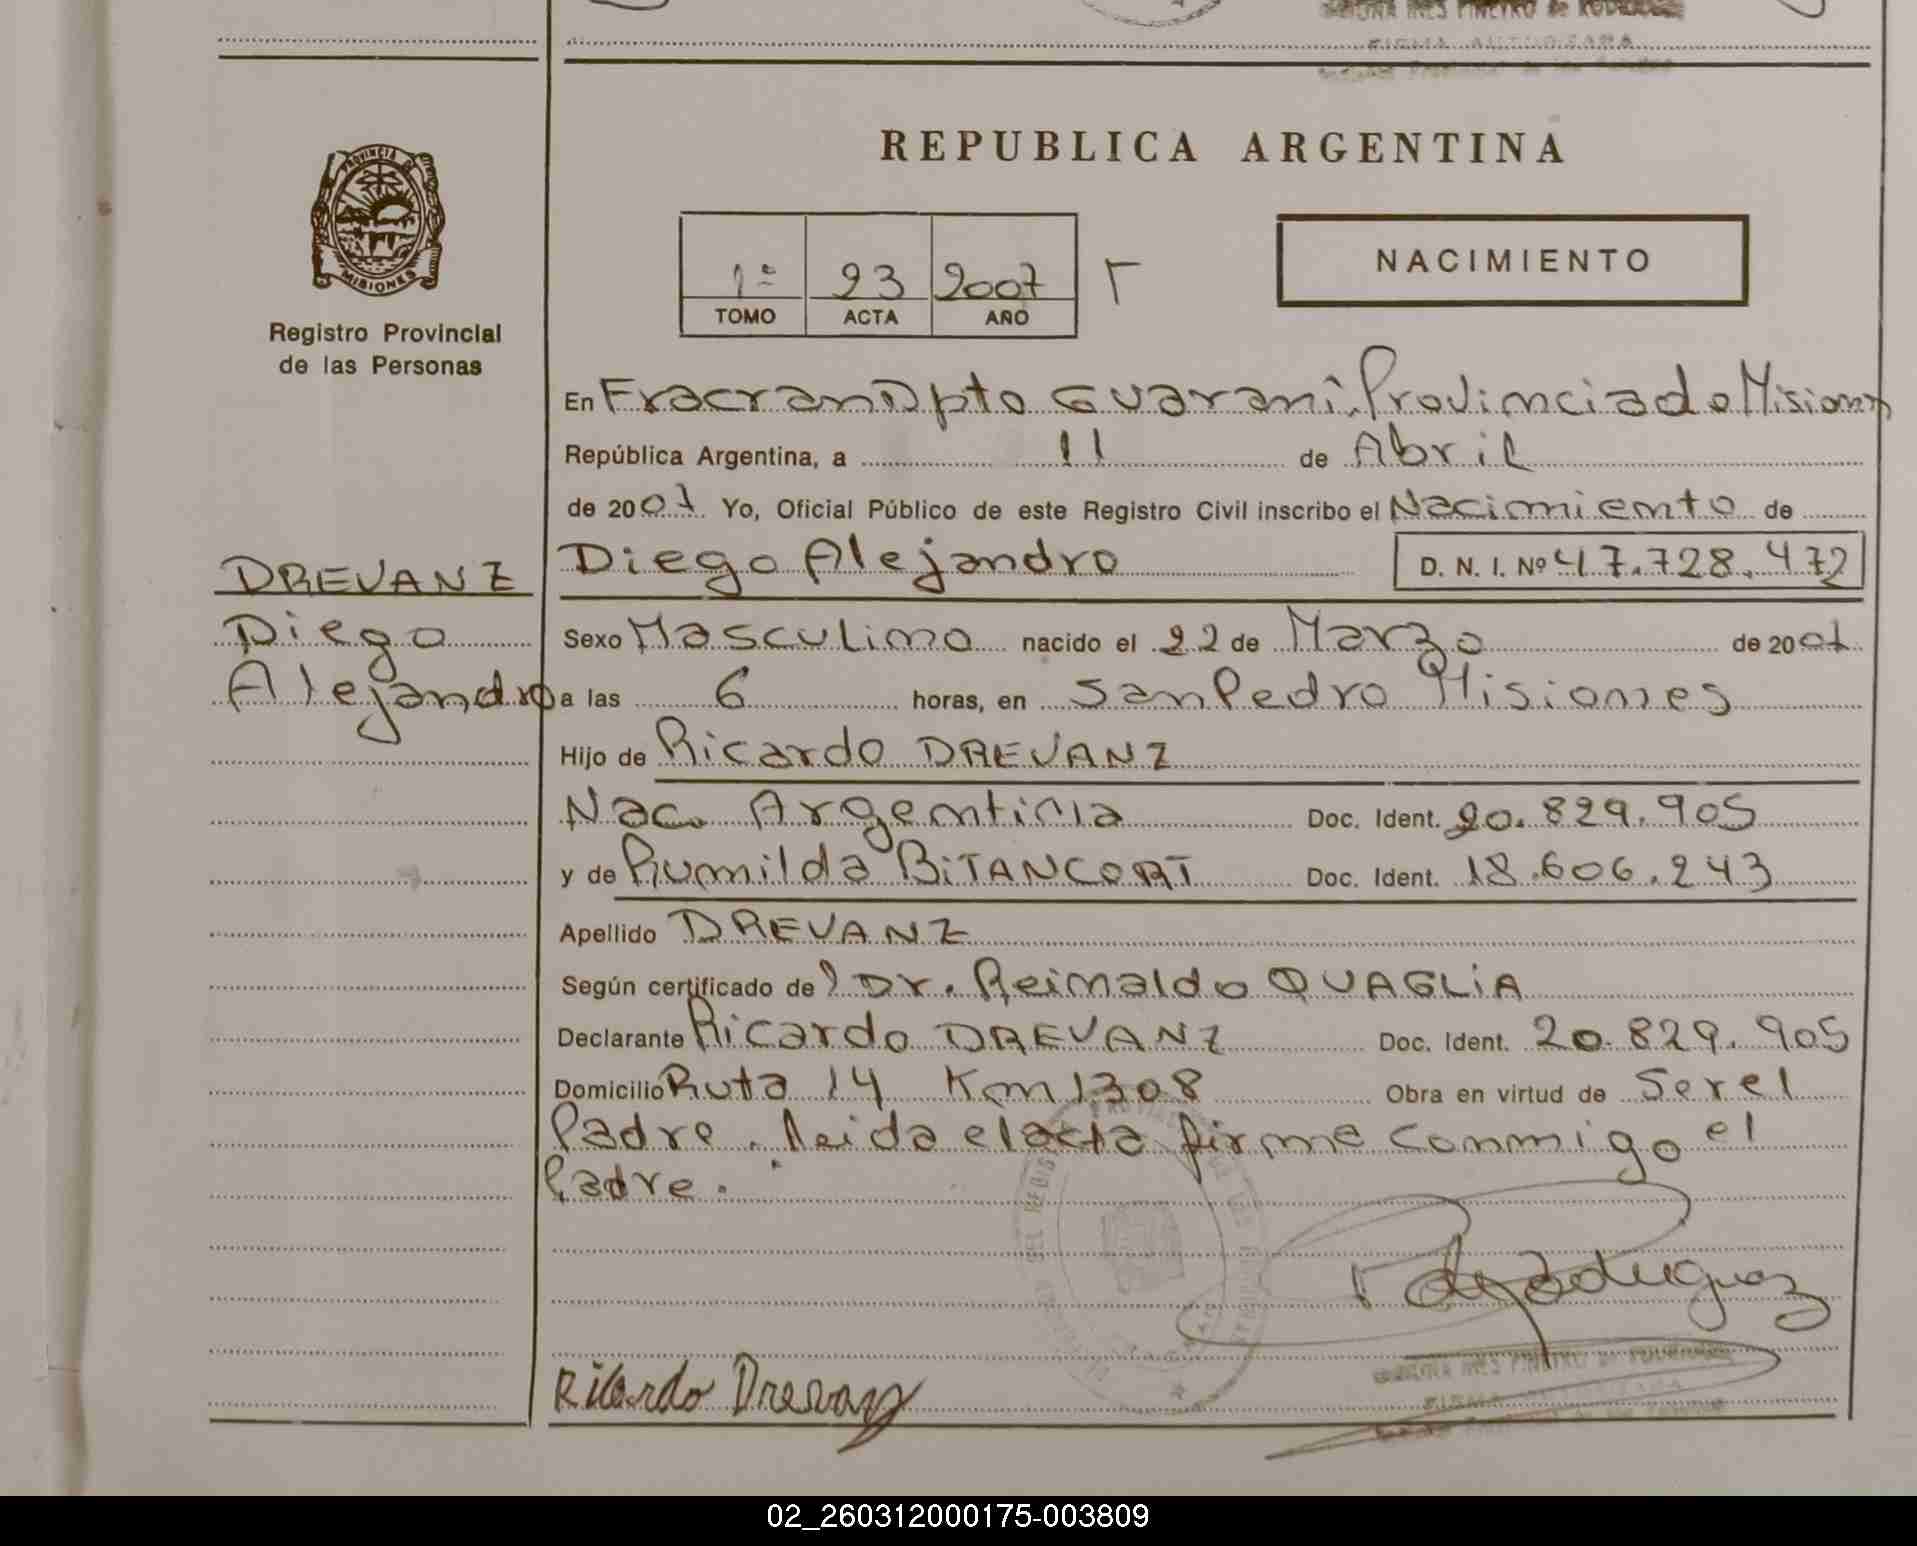 REPUBLICA ARGENTINA
PROVINCIA DE
MISIONES
Registro Provincial
de las Personas
1º 23 2007
TOMO ACTA AÑO
NACIMIENTO
En Fracran Dpto Guarani, Provincia de Misiones
República Argentina, a 11 de Abril
de 2007 Yo, Oficial Público de este Registro Civil inscribo el Nacimiento de
DREVANZ
Diego
Alejandro
Diego Alejandro D. N. I. Nº 47.728.472
Sexo Masculino nacido el 22 de Marzo de 2007
a las 6 horas, en San Pedro Misiones
Hijo de Ricardo DREVANZ
Nac. Argentina Doc. Ident. 20.829.905
y de Rumilda BiTANCORT Doc. Ident. 18.606.243
Apellido DREVANZ
Según certificado del Dr. Reimaldo QUAGLiA
Declarante Ricardo DREVANZ Doc. Ident. 20.829.905
Domicilio Ruta 14 Km 1308 Obra en virtud de Ser el
Padre. Leida el acta firme conmigo el
Padre.
Ricardo Drevanz
02_260312000175-003809